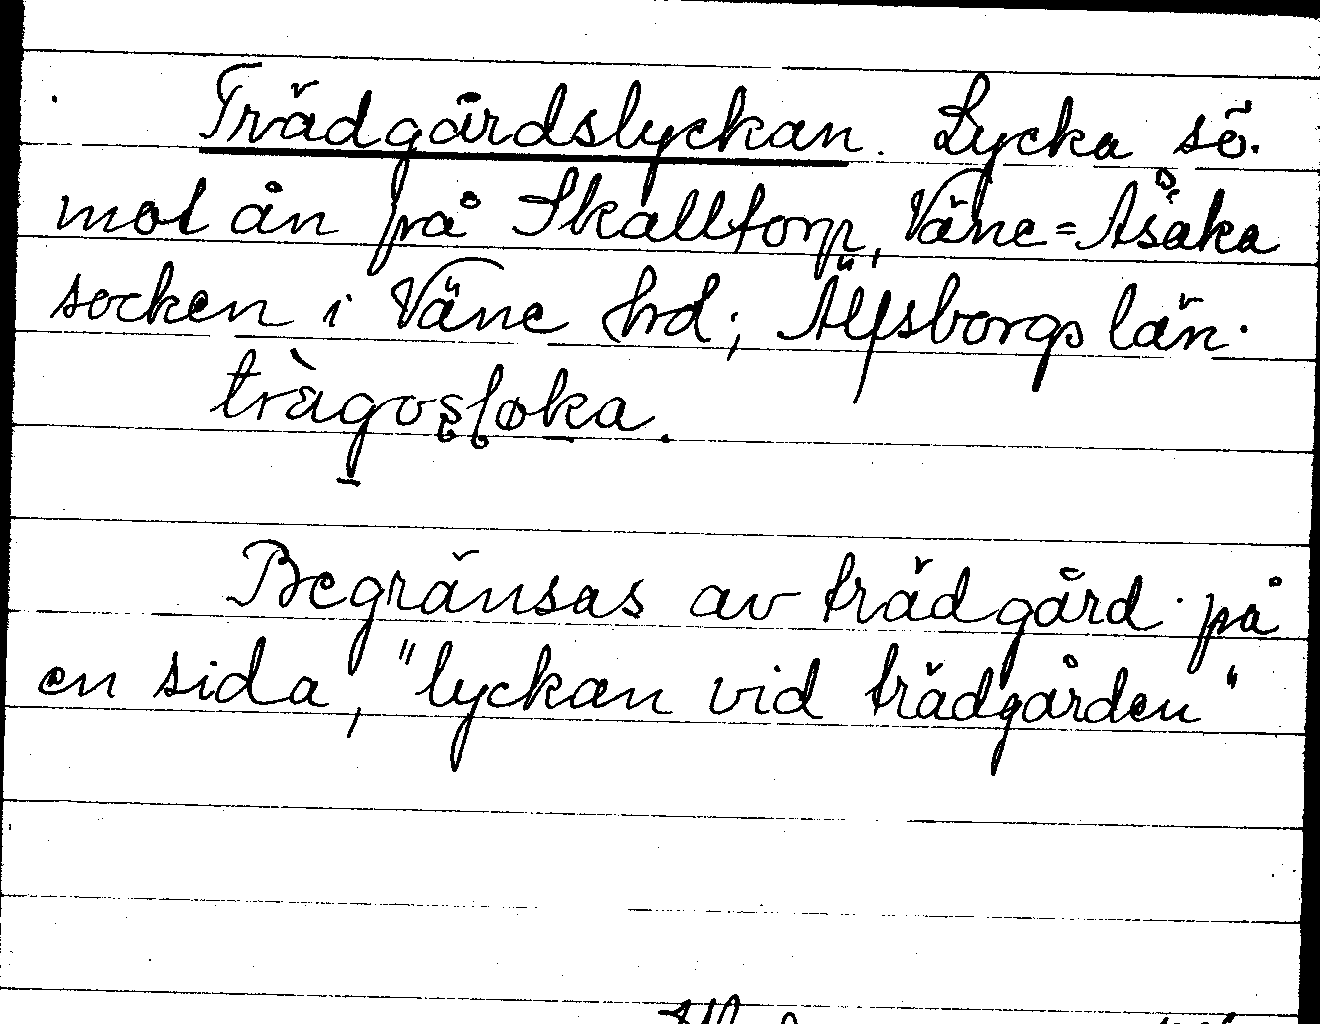 Trädgårdslyckan. Lycka sö.
mot ån på Skalltorp, Väne=Åsaka
socken i Väne hrd; Älfsborgs län.
Begränsas av trädgård på
en sida, "lyckan vid trädgården"